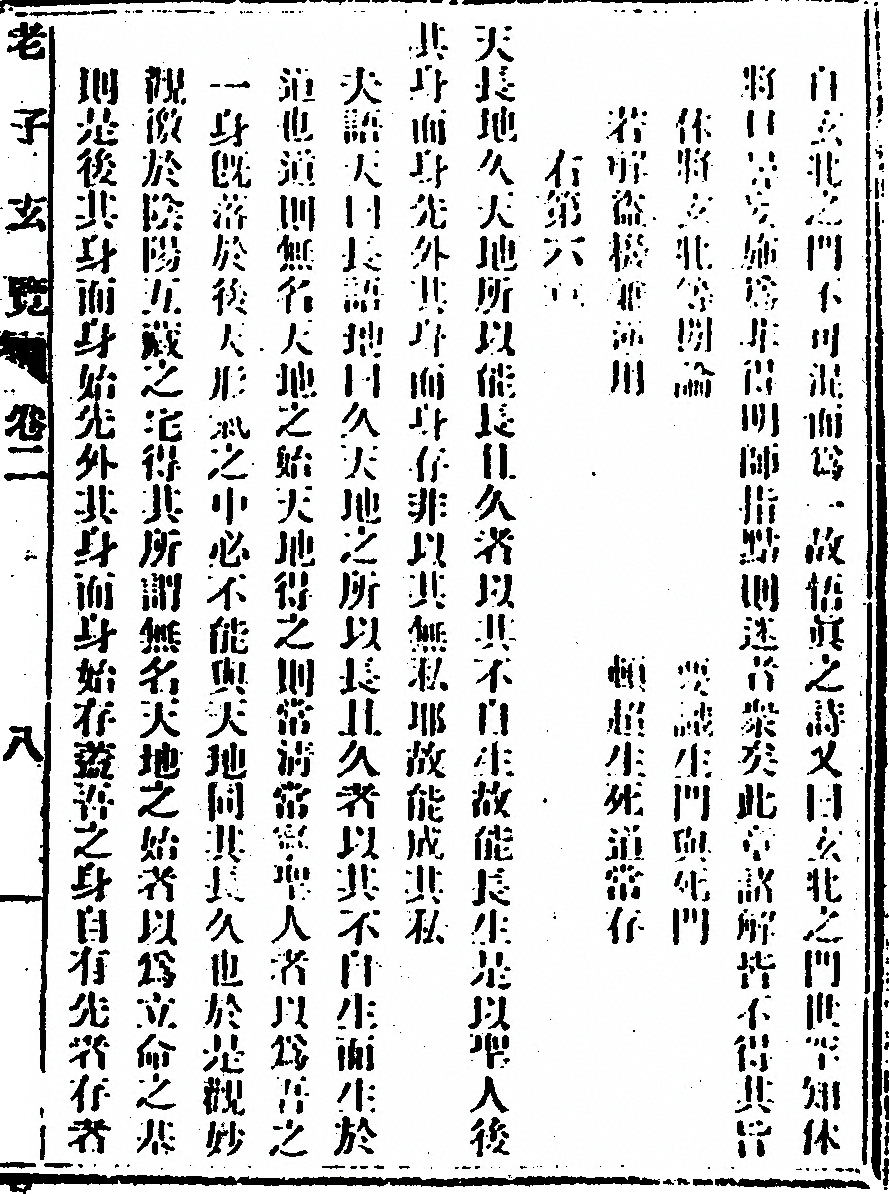 自玄牝之門不可混而爲一故悟眞之詩又曰玄牝之門世罕知休
將口鼻妄施爲非得明師指點則迷者衆矣此章諸解皆不得其旨
休將玄牝等閒論 要識生門與死門
若解盜機並逆用 頓超生死道常存
右第六章
天長地久天地所以能長且久者以其不自生故能長生是以聖人後
其身而身先外其身而身存非以其無私耶故能成其私
夫語天曰長語地曰久天地之所以長且久者以其不自生而生於
道也道則無名天地之始天地得之則常清常寧聖人者以爲吾之
一身旣落於後天形氣之中必不能與天地同其長久也於是觀妙
觀徼於陰陽互藏之宅得其所謂無名天地之始者以爲立命之基
則是後其身而身始先外其身而身始存蓋吾之身自有先者存者
老子玄覽 卷二 八